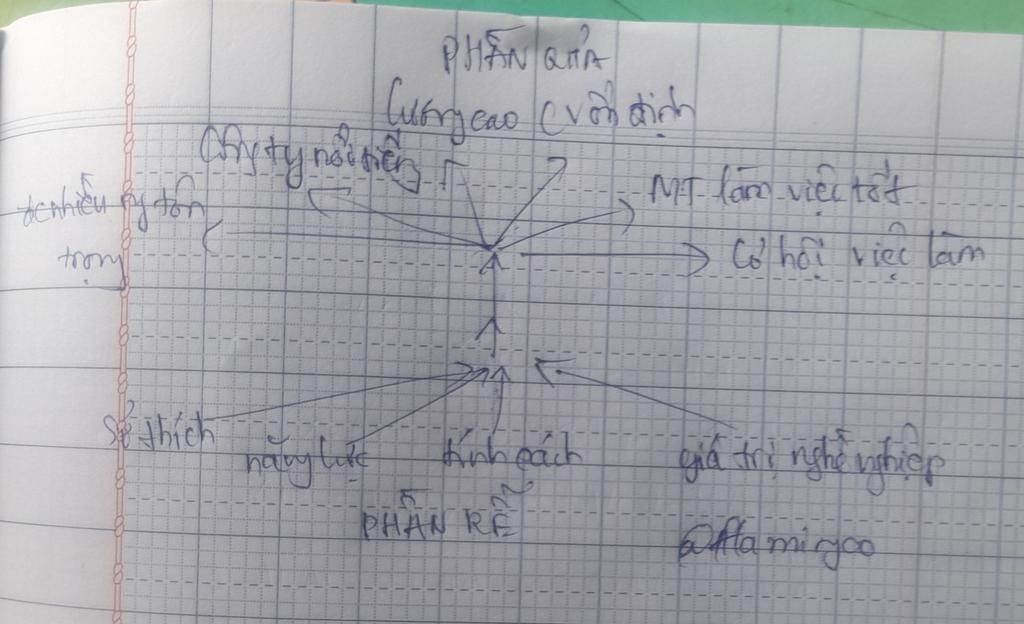 PHẦN QUẢ
Lương cao (v ổn định
Công ty nổi tiếng
MT làm việc tốt
đc nhiều ng tôn
trọng
Cơ hội việc làm
Sở thích
năng lực
tính cách
giá trị nghề nghiệp
PHẦN RỄ